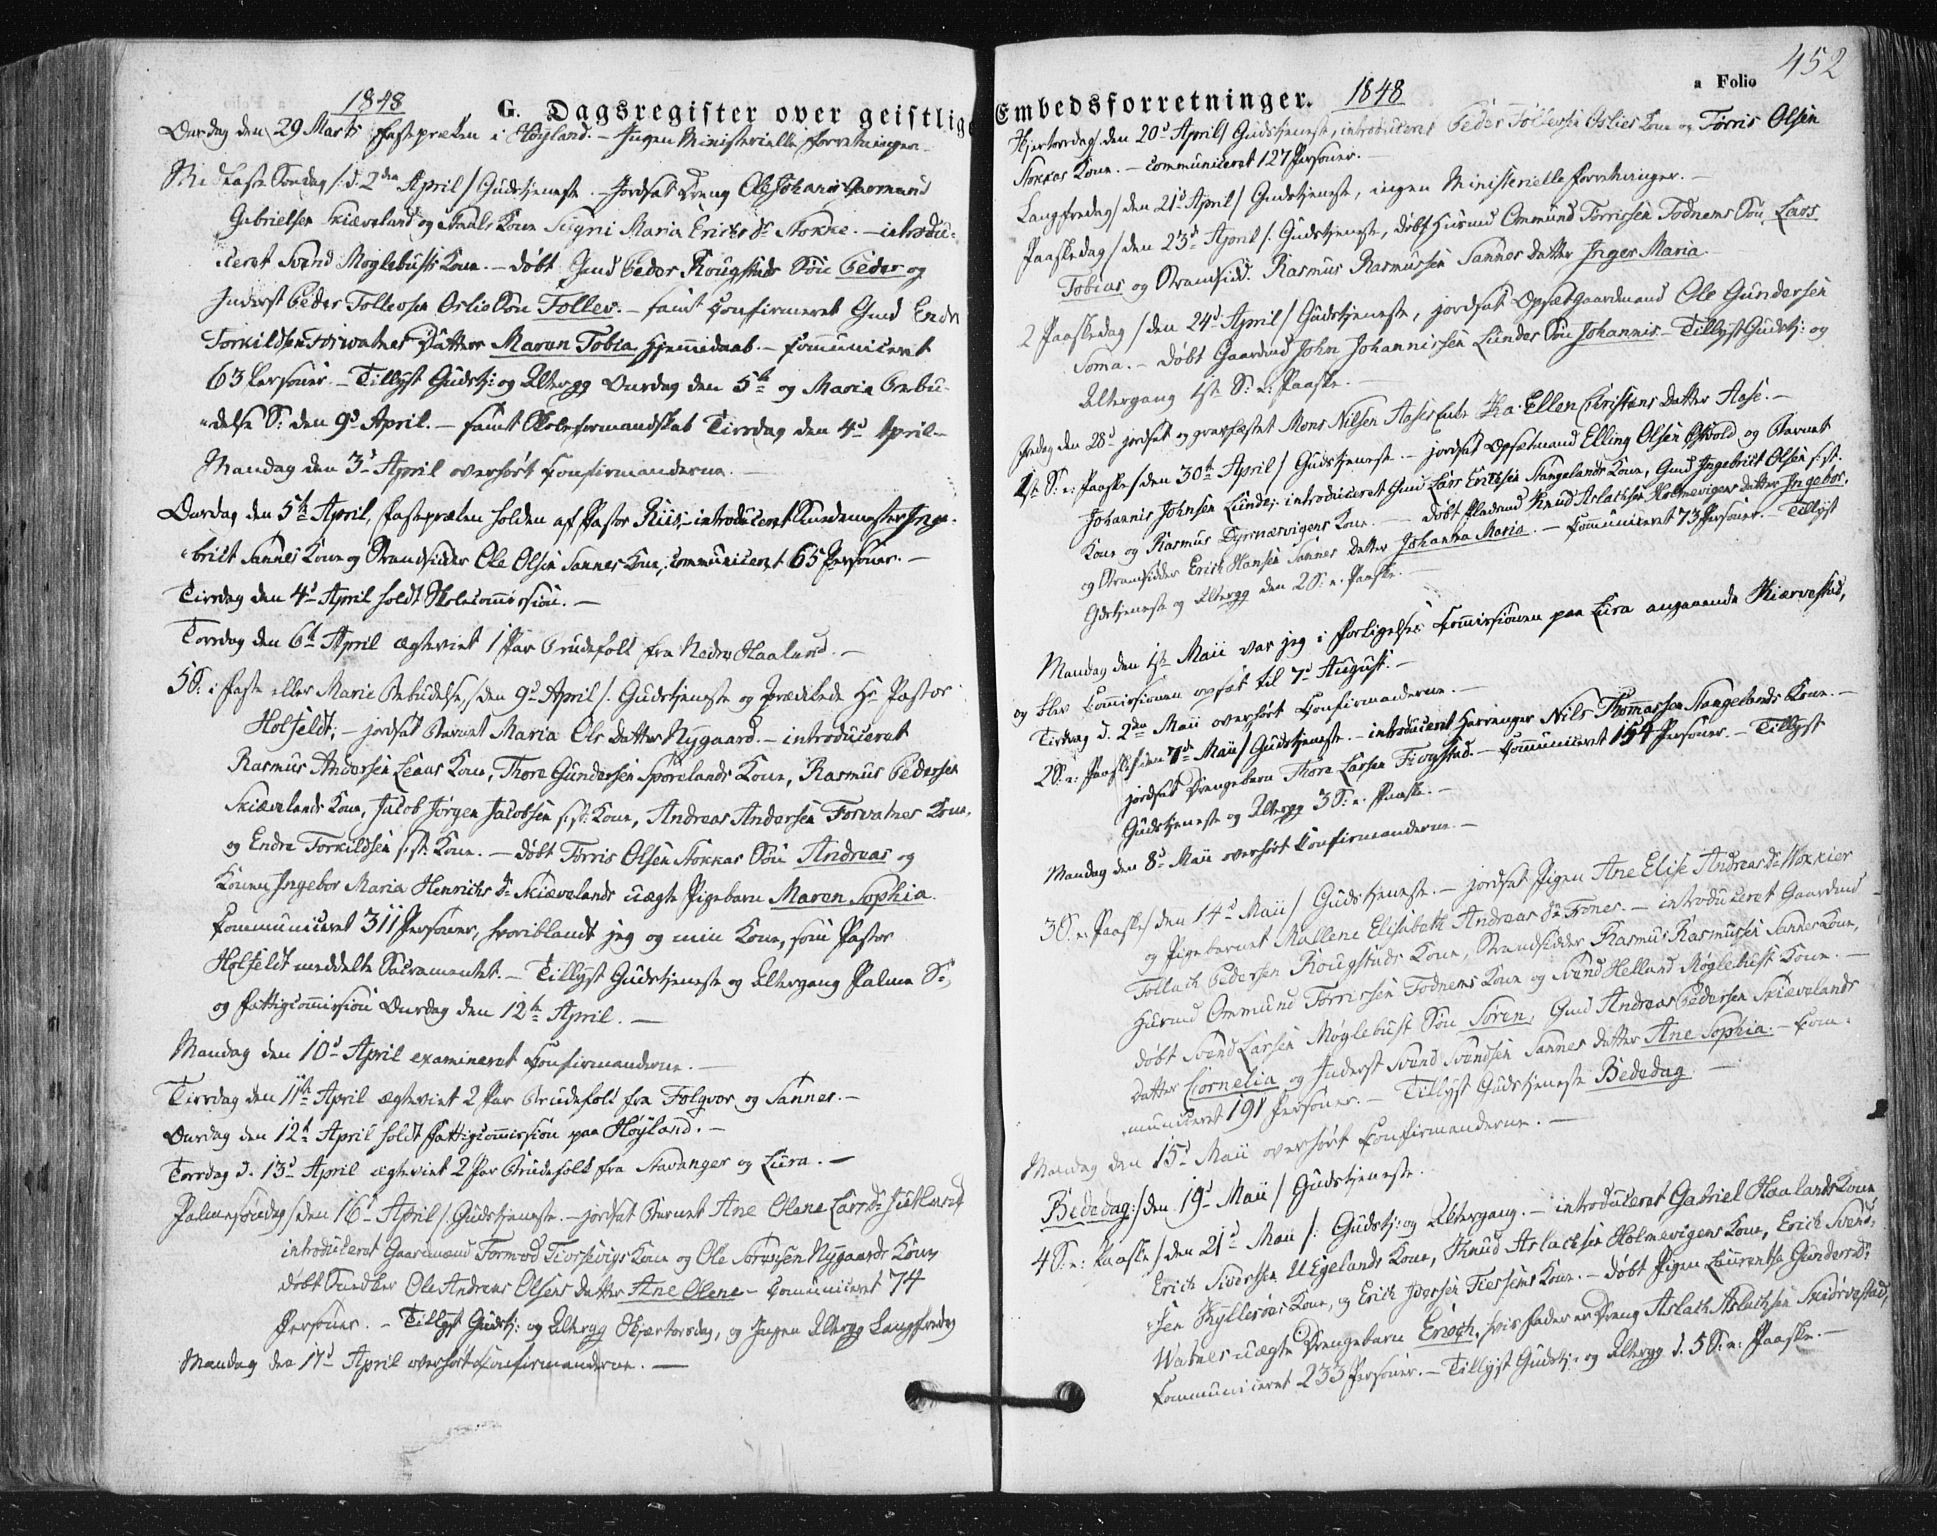 1848
G. Dagsregister over geistlige
Onsdag den 29 Marts Fastepræken i Høyland. — Ingen Ministerielle Forretninger.
Midfaste Søndag /: d. 2den April/ Gudstjeneste. — Jordfæst Dreng Ole Johannes Gaarmand
Gabrielsen Skiæveland og Maals Kone Signi Maria Erichs Dr Stokke. — introdu-
ceret Svend Møglebusts Kone. — døbt Gmd Peder Rougstads Søn Peder og
Inderst Peder Tollevsen Oslies Søn Tollev. — samt confirmeret Gmd Endre
Torkildsen Forvatnes Datter Maren Tobia hjemmedøbt. — Communiceret
63 Personer. — Tillyst Gudstj: og Altergg Onsdag den 5te og Maria Bebu-
delse S: den 9d April. — samt Skoleformandskab Tirsdag den 4d April
Mandag den 3d April overhørt Confirmanderne. —
Onsdag den 5te April, Fastepræken holden af Pastor Riis, introduceret Kundemester Inge-
brict Sannes Kone og Strandsidder Ole Olsen Sannes Kone, communiceret 65 Personer. —
Tirsdag den 4d April holdt Skolecommission. —
Torsdag den 6te April ægteviet 1 Par Brudefolk fra Nedre Haaland. —
5 S: i Faste eller Marie Bebudelse, /den 9d April/. Gudstjeneste og prædikede Hr Pastor
Holfeldt; — jordfæst Barnet Maria Ols Datter Nygaard. — introduceret
Rasmus Andersen Leaas Kone, Thore Gundersen Sporelands Kone, Rasmus Pedersen
Skiævelands Kone, Jacob Jørgen Jacobsen s: st: Kone, Andreas Andersen Forvatnes Kone,
og Endre Torkildsen s: st: Kone. — døbt Torris Olsen Stokkas Søn Andreas og
Konen Ingebor Maria Henriks Dr Skiævelands uægte Pigebarn Maren Sophia.
Communiceret 311 Personer, hvoriblandt jeg og min Kone, som Pastor
Holfeldt meddelte Sacramentet. — Tillyst Gudstjeneste og Altergang Palme S:,
og Fattigcommission Onsdag den 12te April. —
Mandag den 10d April examineret Confirmanderne. —
Tirsdag den 11te April ægteviet 2 Par Brudefolk fra Folgvor og Sannes. —
Onsdag den 12te April holdt Fattigcommission paa Høyland. —
Torsdag d. 13d April ægteviet 2 Par Brudefolk fra Stavanger og Lura. —
Palmesøndag /den 16d April/ Gudstjeneste. — jordfæst Barnet Ane Olene Lars Dr Jutland
introduceret Gaardmand Tormod Tiorsevigs Kone og Ole Sørensen Nygaards Kone,
døbt Snedker Ole Andreas Olsens Datter Ane Olene — Communiceret 74
Personer. — Tillyst Gudstj: og Altergg Skjærtorsdag, og Ingen Altergg Langfredag
Mandag den 17d April overhørt Confirmanderne. —
452
a Folio
Embedsforretninger. 1848
Skjertorsdag/ den 20d April/ Gudstjeneste, introduceret Peder Tollevsen Oslies Kone og Torris Olsen
Stokkas Kone. — Communiceret 127 Personer. —
Langfredag/ den 21d April/ Gudstjeneste, ingen Ministerielle Forretninger. —
Paaskedag/ den 23d April/. Gudstjeneste, døbt Husmd Ommund Torrissen Todnems Søn Lars
Tobias og Strandsidd. Rasmus Rasmussen Sannes datter Inger Maria.
2 Paaskedag/ den 24d April/ Gudstjeneste, jordfæst Opsætgaardmand Ole Gundersen
Soma. — døbt Gaardmd John Johannissen Lundes Søn Johannis — Tillyst Gudstj: og
Altergang 1ste S: e: Paaske. —
Fredag den 28d jordfæst og gravfæstet Mons Nilsen Aases Enke Ka. Ellen Christians Datter Aase. —
1ste S: e: Paaske/ den 30te April/ Gudstjeneste. — jordfæst Opsætmand Elling Olsen Osvold og Barnet
Johannis Johnsen Lunde; introduceret Gmd Lars Ericksen Stangelands Kone, Gmd Ingebrict Olsen s: st:
Kone og Rasmus Dyrnæsvigens Kone. — døbt Pladsmd Knud Aslachsen Holmevigens datter Ingebor,
og Strandsidder Erick Hansen Sannes datter Johanna Maria. — Communiceret 73 Personer. — Tillyst
Gdstjeneste og Altergg den 2 S: e. Paaske. —
Mandag den 1ste Maii var jeg i Forligelses Commissionen paa Lura angaaende Kiærvestad,
og blev Commissionen opsat til 7d August. —
Tirsdag d. 2den Maii overhørt Confirmanderne. —
2 S: e: Paaske/ den 7d Maii/ Gudstjeneste. — introduceret Harrenger Nils Thomassen Stangelands Kone. —
jordfæst Drengebarn Thore Larsen Tiorsstad. — Communiceret 154 Personer. — Tillyst
Gudstjeneste og Altergg 3 S: e. Paaske. —
Mandag den 8d Maii overhørt Confirmanderne. —
3 S. e. Paaske/ den 14d Maii/ Gudstjeneste. — jordfæst Pigen Ane Elise Andreas Dr
og Pigebarnet Mallene Elisabeth Andreas Dr Trones. — introduceret Gaardmd
Tollach Pedersen Rougstads Kone, Strandsidder Rasmus Rasmusen Sannes Kone,
Husmd Ommund Torrissen Todnems Kone og Svend Helland Møglebust Kone. —
døbt Svend Larsen Møglebust Søn Soren, Gmd Andreas Pedersen Skiævelands
datter Cornelia og Inderst Svend Svendsen Sannes datter Ane Sophia. — Com-
municeret 191 Personer. — Tillyst Gudstjeneste Bededag. —
Mandag den 15d Maii overhørt Confirmanderne. —
Bededag /: den 19d Maii/ Gudstjeneste.
4 S. e: Paaske/ den 21d Maii/: Gudstj: og Altergang. — introduceret Gabriel Haalands Kone
Erick Sivertsen Uegelands Kone, Knud Aslachsen Holmevigens Kone, Erick Svend-
sen Kyllesøes Kone, og Erick Iversen Tiessems Kone. — døbt Pigen Laurentse Gunders Dr
Watnes uægte Drengebarn Enoch, hvis Fader er Dreng Aslach Aslachsen Skiørvestad,
Communiceret 233 Personer. — Tillyst Gudstj: og Altergg d. 5 S: e: Paaske. —